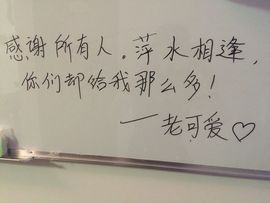 感谢所有人。萍水相逢，
你们都给我那么多！
——老可爱♡